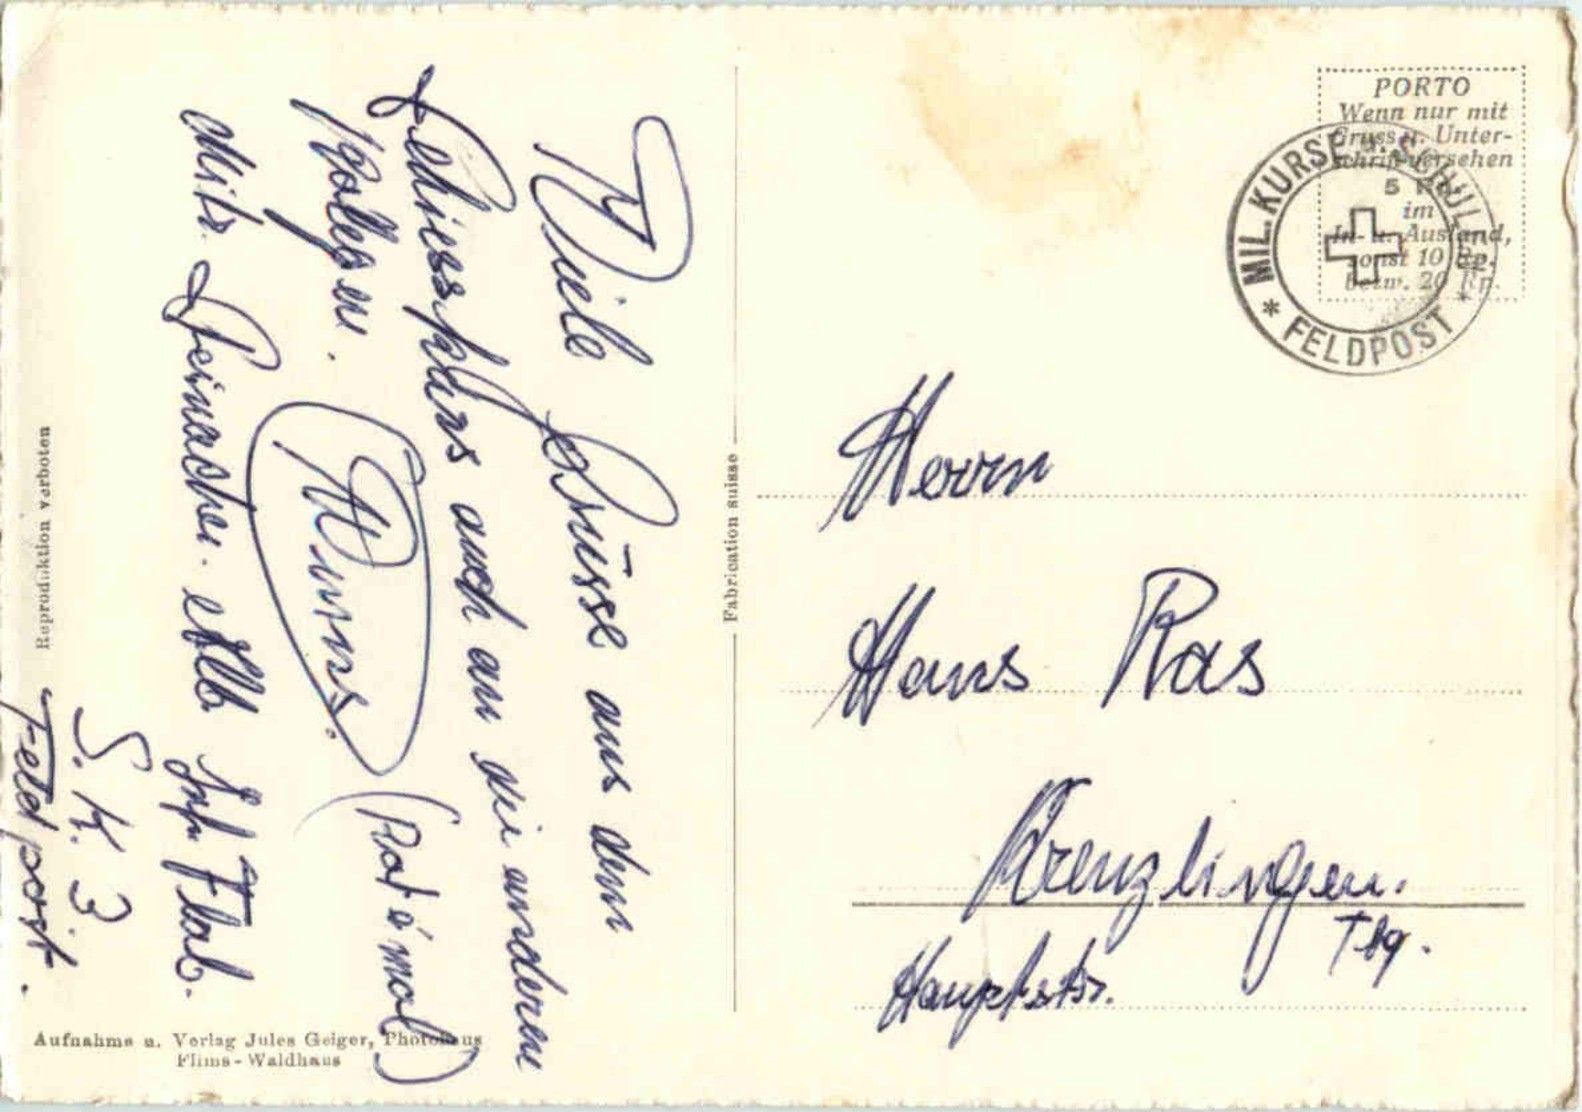 Viele Grüsse aus dem
Schiesskurs auch an die anderen
Hans.
(Rat e mol)
Mitr.
Flab.
S. K. 3
Feldpost.
Reproduktion verboten
Aufnahme u. Verlag Jules Geiger, Photohaus
Flims-Waldhaus
Fabrication suisse
PORTO
Wenn nur mit
Gruss u. Unter-
schrift versehen
5 Rp.
im
In- u. Ausland,
sonst 10 Rp.
bezw. 20 Rp.
MIL. KURSE u. SCHULEN
* FELDPOST *
Herrn
Hans Ras
Kreuzlingen.
Thg.
Hauptstr.